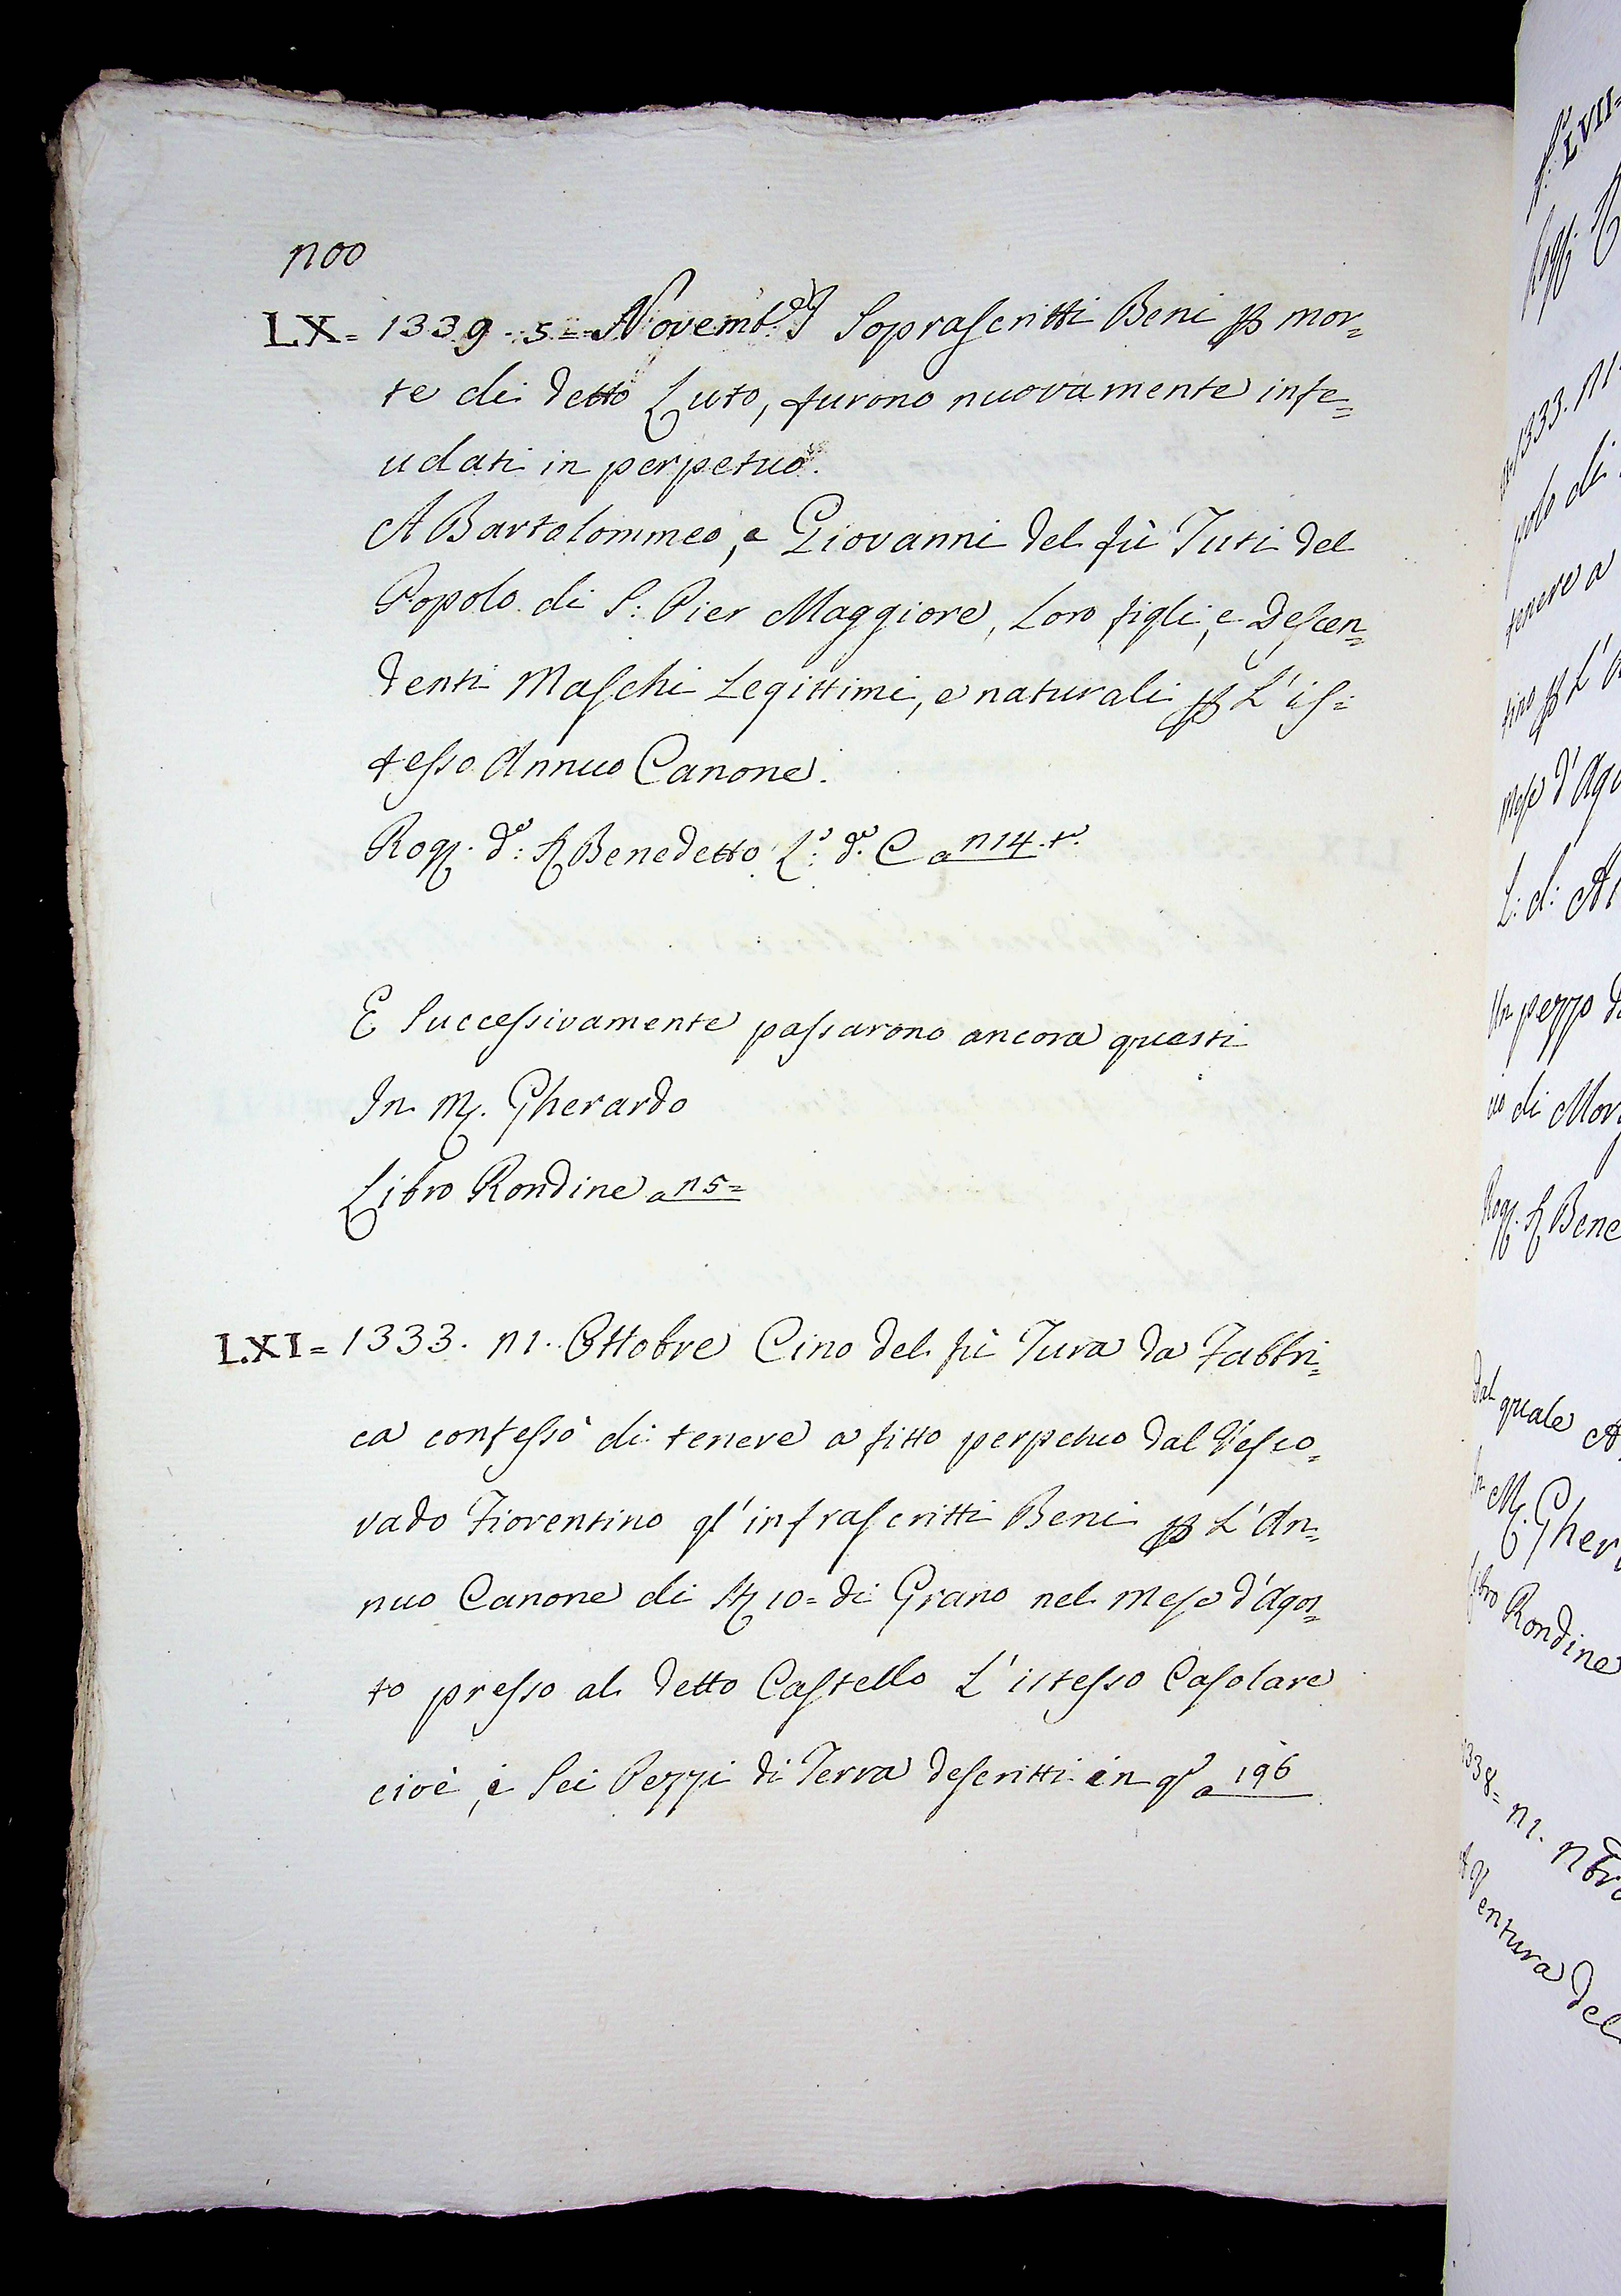 200
LX= 1339. 5= Novemb.e I Soprascritti Beni p mor=
te di detto Luto, furono nuovamente infe=
udati in perpetuo.
A Bartolommeo, e Giovanni del fù Tuti del
Popolo di S: Pier Maggiore, Loro figli, e Descen=
denti Maschi Legittimi, e naturali p L'is=
tesso Annuo Canone.
Rog. d.o: S. Benedetto L.o: d.o C a 214. t.o
E Successivamente passarono ancora questi
In M. Gherardo
Libro Rondine a 25=
LXI= 1333. 21. Ottobre Cino del fù Tura da Fabbri=
ca confessò di tenere a fitto perpetuo dal Vesco=
vado Fiorentino gl'infrascritti Beni p L'An=
nuo Canone di St 10= di Grano nel mese d'Agos=
to presso al detto Castello L'istesso Casolare
cioè, e Sei Pezzi di Terra descritti in q.o a 196
1333.
polo di
tenere a
tino p L'
Mese d'Ago
L: d: A
Un pezzo d
di Mor
Rog. S. Bene
Dal quale A
In M. Gher
Libro Rondine
1338= 21.
entura del